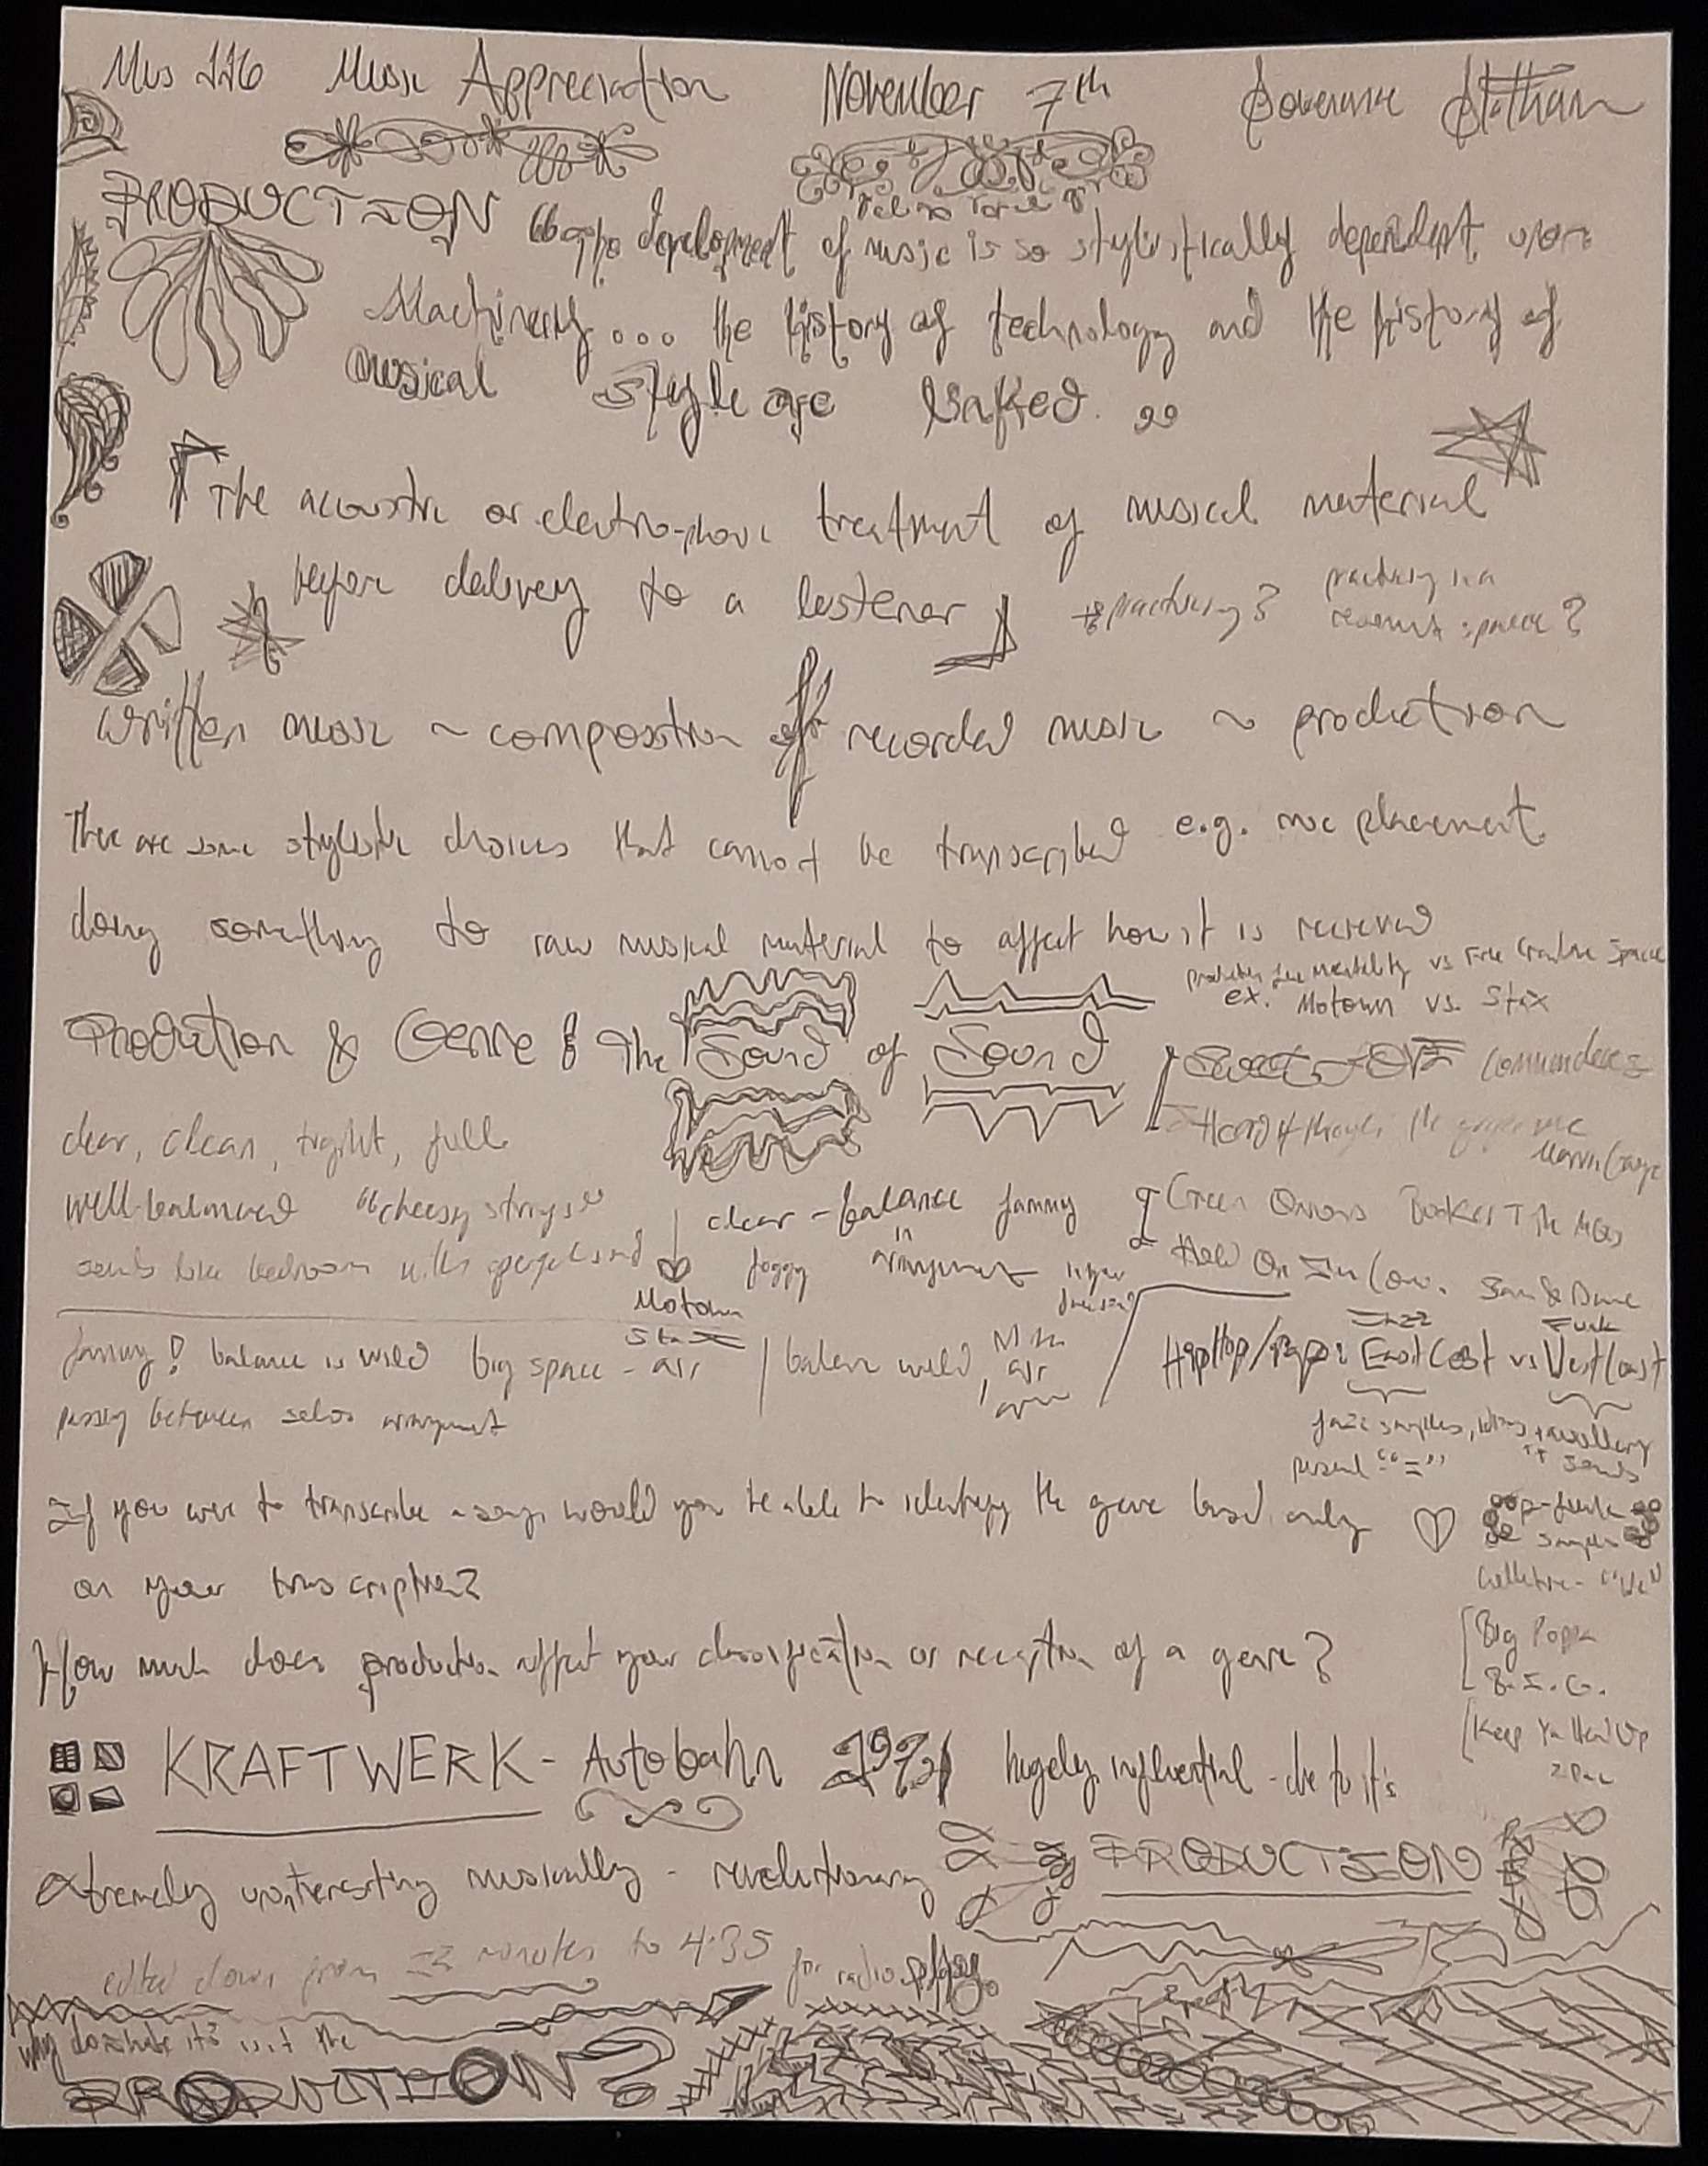 Mus 226 Music Appreciation November 7th
PRODUCTION "the development of music is so stylistically dependent upon
Machinery... the history of technology and the history of
musical style are linked."
The acoustic or electro-phonic treatment of musical material
before delivery to a listener practicing? practicing in a
space?
written music ~ composition recorded music ~ production
There are some stylistic choices that cannot be transcribed e.g. mic placement
doing something to raw musical material to affect how it is recieved
production line mentality vs Free Creative Space
ex. Motown vs. Stax
Production & Genre : The Sound of Sound
Commodores
Heard it through the grapevine
Marvin Gaye
clear, clean, tight, full
well-balanced "cheesy strings"
sounds like bedroom
Motown
Stax
clear - balance jammy
foggy in arrangement
Green Onions Booker T the MGs
Hold On I'm Com. Sam & Dave
jammy! balance is wild big space - air balance wild, air
passing between solos arrangement
Jazz Funk
HipHop/Rap: East Coast vs West Coast
jazz samples,
personal "I"
sounds
p-funk
samples
Collective - "We"
If you were to transcribe a song, would you be able to identify the genre based only
on your transcription?
How much does production affect your classification or reception of a genre?
[Big Poppa
B.I.G.
[Keep Ya Head Up
2Pac
KRAFTWERK - Autobahn 1974 hugely influential - due to it's
extremely uninteresting musically - revolutionary PRODUCTION
edited down from 22 minutes to 4:35 for radio play.
why do I hate it? is it the
PRODUCTION?